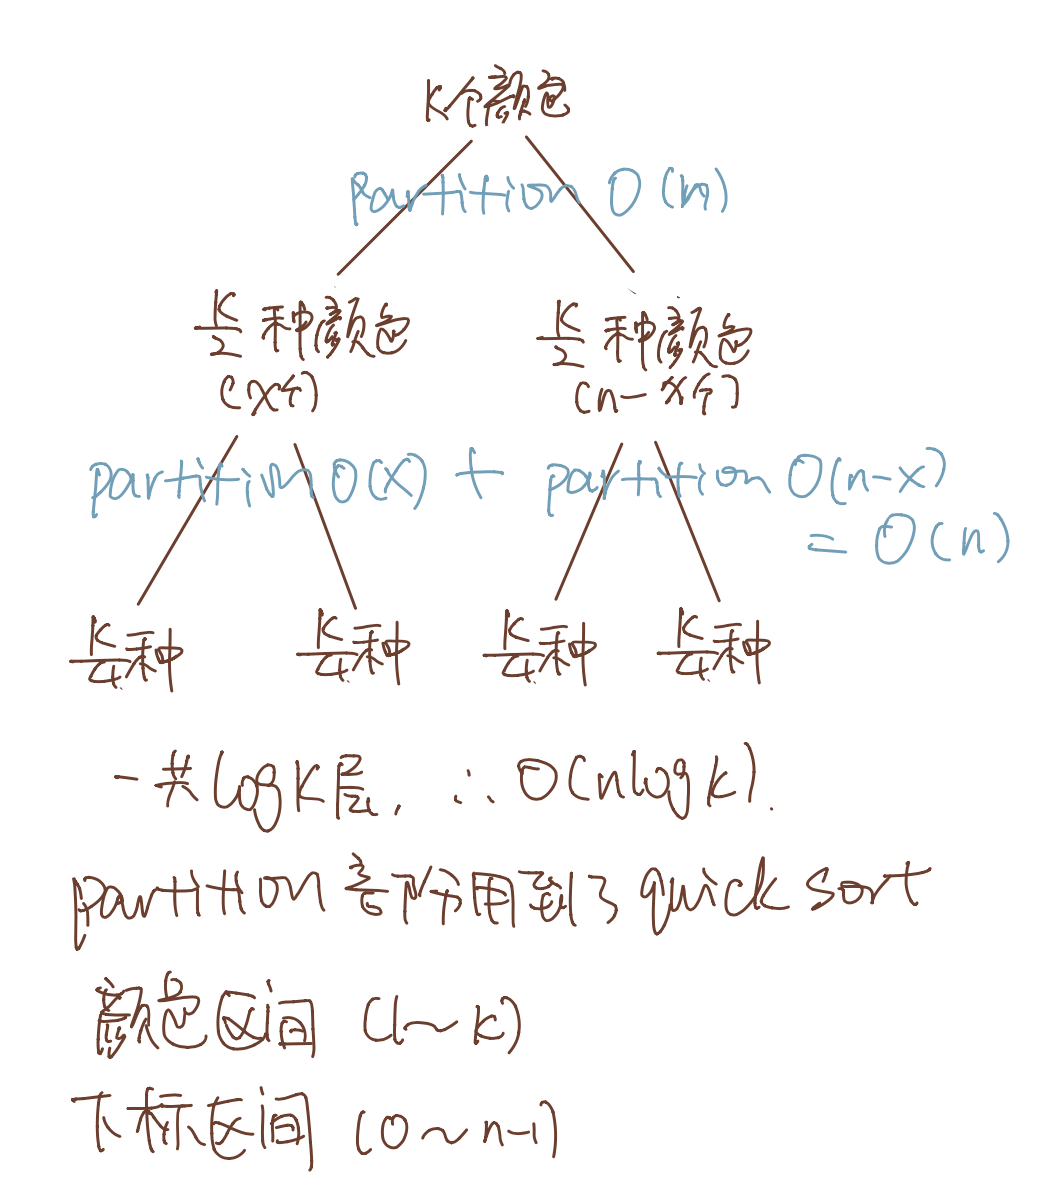 K个颜色
partition O(n)
K/2 种颜色 K/2 种颜色
(x个) (n-x个)
partition O(x) + partition O(n-x)
= O(n)
K/4种 K/4种 K/4种 K/4种
一共logK层, ∴ O(nlogk).
partition部分用到了quick sort
颜色区间 (1~k)
下标区间 (0~n-1)